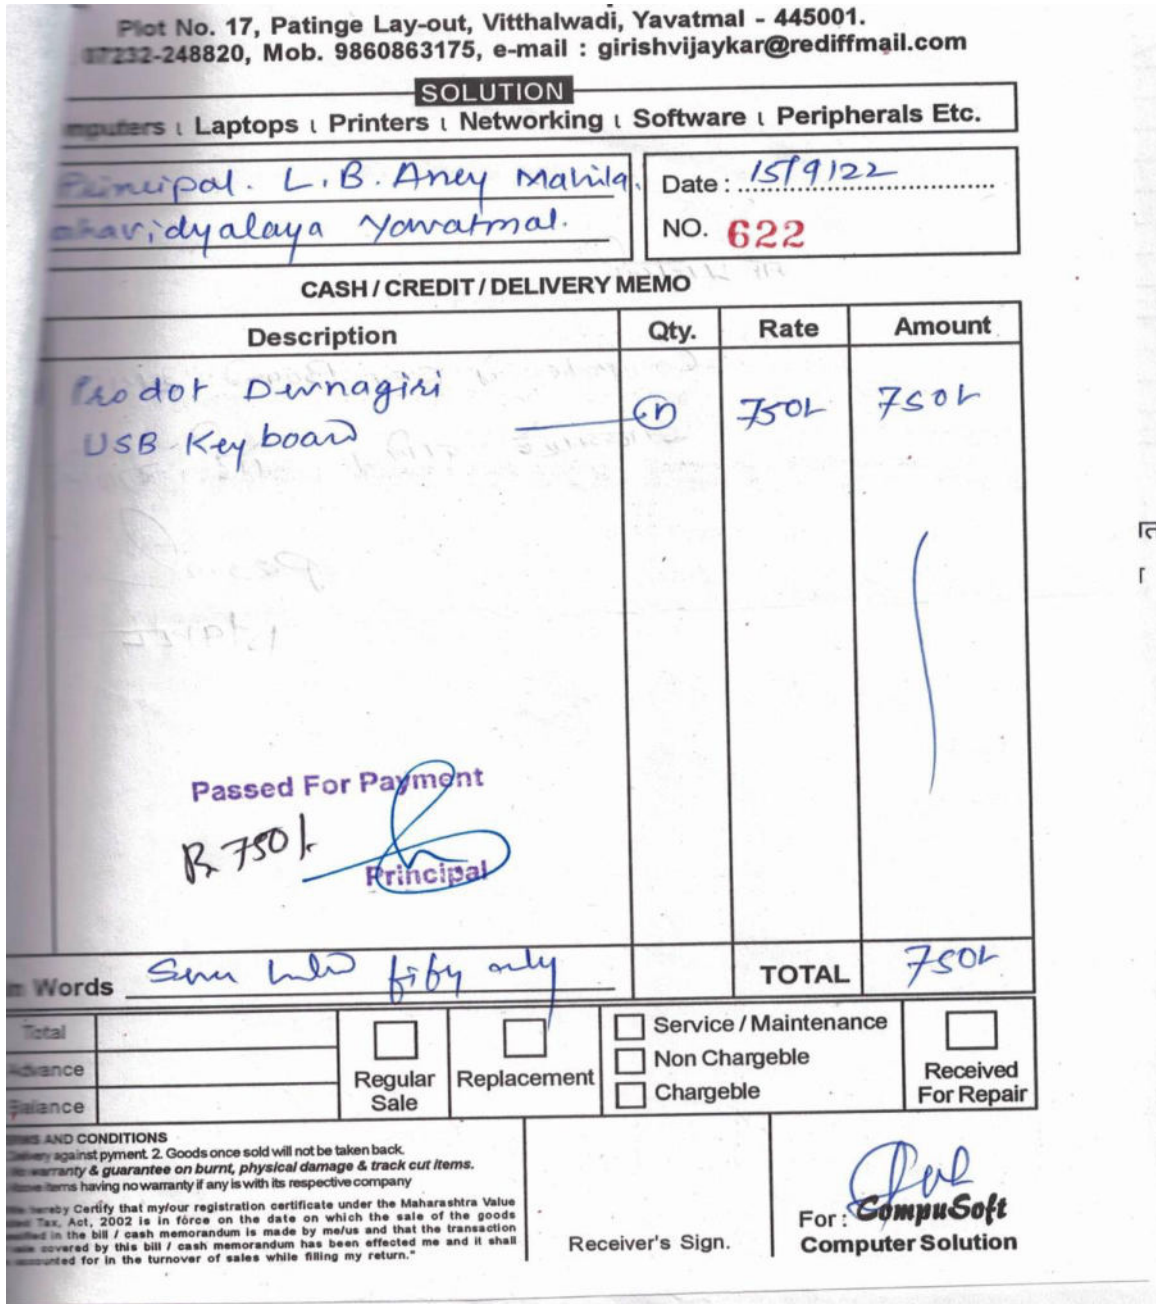 Plot No. 17, Patinge Lay-out, Vitthalwadi, Yavatmal - 445001.
07232-248820, Mob. 9860863175, e-mail : girishvijaykar@rediffmail.com
SOLUTION
mputers ι Laptops ι Printers ι Networking ι Software ι Peripherals Etc.
Principal. L.B. Aney Mahila
ahavidyalaya Yavatmal.
Date : 15/9/22
NO. 622
CASH / CREDIT / DELIVERY MEMO
Description Qty. Rate Amount
Prodot Devnagiri
USB Keyboard 750/- 750/-
Passed For Payment
Rs 750/-
Principal
n Words Seven fifty only TOTAL 750/-
Total
Advance
Balance
Regular Sale
Replacement
Service / Maintenance
Non Chargeble
Chargeble
Received
For Repair
AND CONDITIONS
against pyment. 2. Goods once sold will not be taken back.
warranty & guarantee on burnt, physical damage & track cut items.
items having no warranty if any is with its respective company
hereby Certify that my/our registration certificate under the Maharashtra Value
Tax, Act, 2002 is in force on the date on which the sale of the goods
in the bill / cash memorandum is made by me/us and that the transaction
covered by this bill / cash memorandum has been effected me and it shall
accounted for in the turnover of sales while filling my return."
Receiver's Sign.
For : CompuSoft
Computer Solution